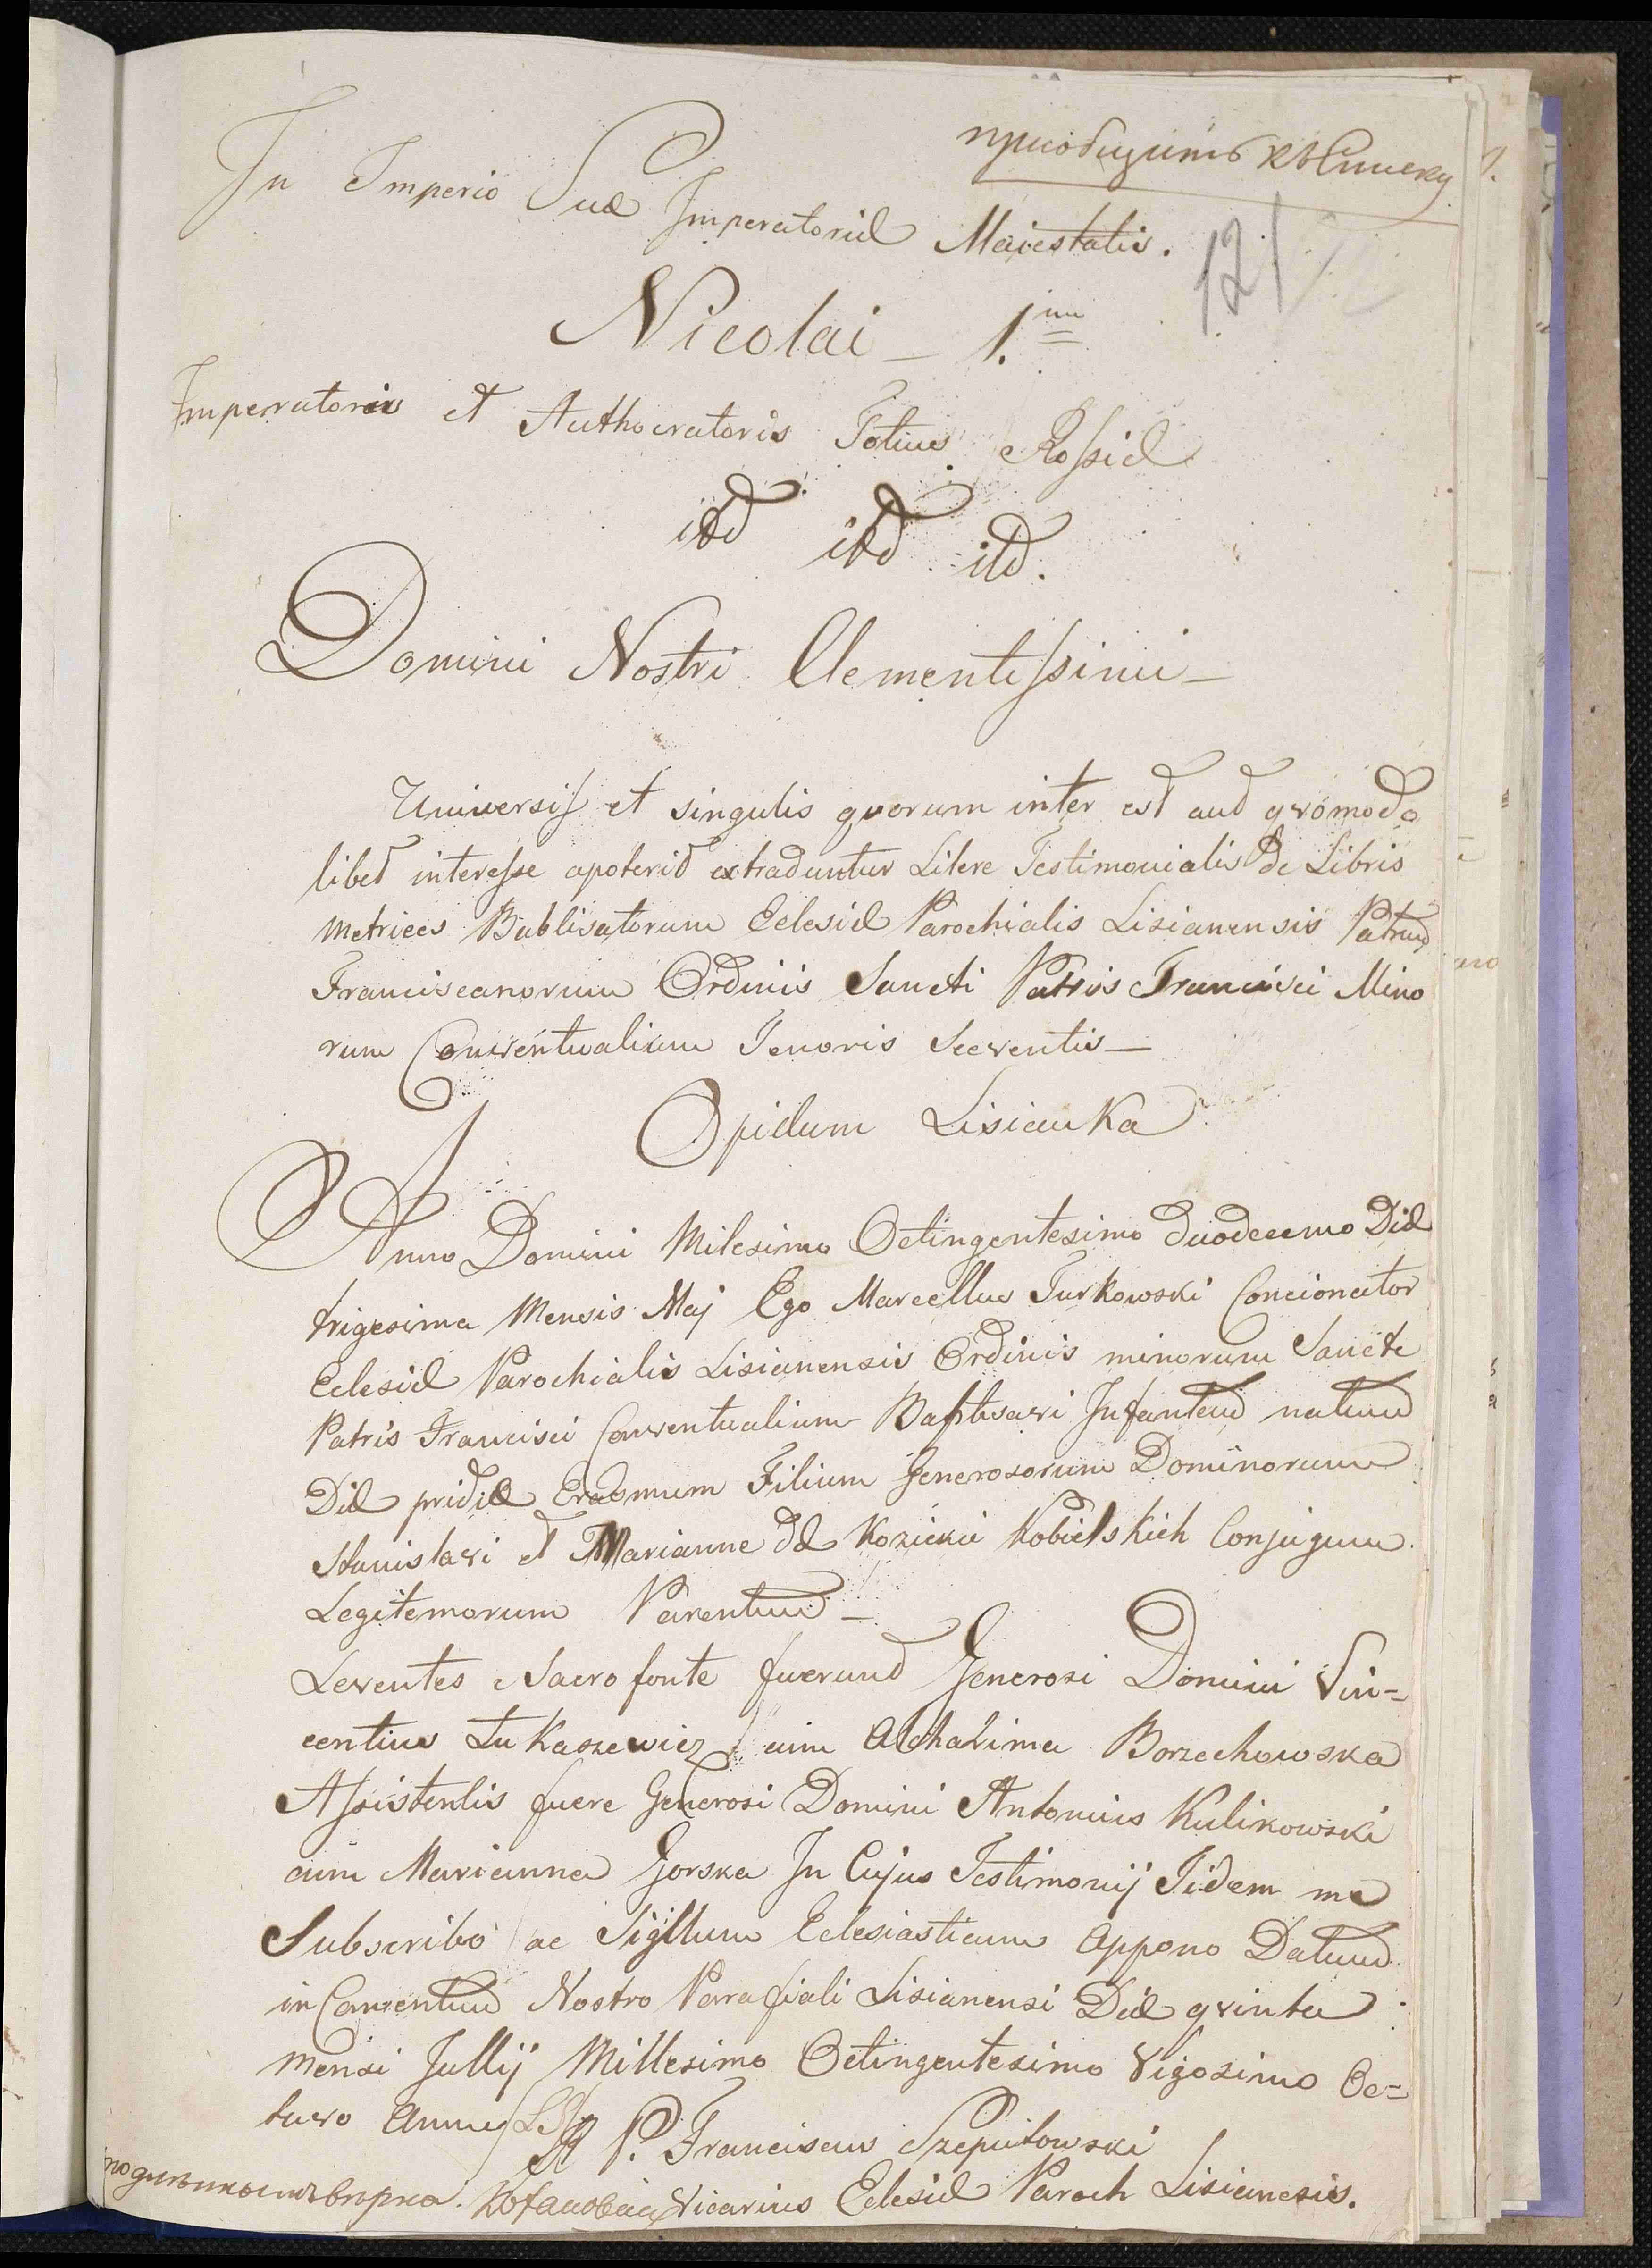 приобщить къ списку
In Imperio Suæ Imperatoriæ Maiestatis.
121
Nicolai – 1.mi
Imperratoris et Authocratoris Totius Rossiæ
itd itd itd.
Domini Nostri Clementissimi –
Universis et singulis qvorum inter est aud qvómodo
libet interesse apoterit extraduntur Litere Testimonialis de Libris
Metrices Babtisatorum Eclesiæ Parochialis Lisianensis Patrum
Franciscanorum Ordinis Sancti Patris Francisci Mino
rum Conventualium Tenoris Seeventis –
Opidum Lisianka
Anno Domini Milesimo Octingentesimo duodecemo Diæ
trigesima Mensis Maj Ego Marcellus Turkowski Concionator
Eclesiæ Parochialis Lisianensis Ordinis minorum Sancte
Patris Francisci Conventualium Baptisavi Infantem natum
Diæ pridiæ Erasmum Filium Generosorum Dominorum
Stanislavi et Marianne dæ Kozickie Kobielskich Conjugum
Legitemorum Parentum –
Leventes Sacro fonte fuerund Generosi Domini Vin=
centius Lukaszewicz cum Achalima Borzechowska
Assistentis fuere Generosi Domini Antonius Kulikowski
cum Marianna Gorska In Cujus Testimonij Fidem me
Subscribo ac Sigillum Eclesiasticum Appono Datum
in Conventum Nostro Parafiali Lisianensi Diæ qvinta
mensi Jullij Millesimo Octingentesimo Vigosimo Oc=
tavo Anno (LS)
P. Franciscus Szeputowski
Vicarius Eclesiæ Paroch Lisianesis.